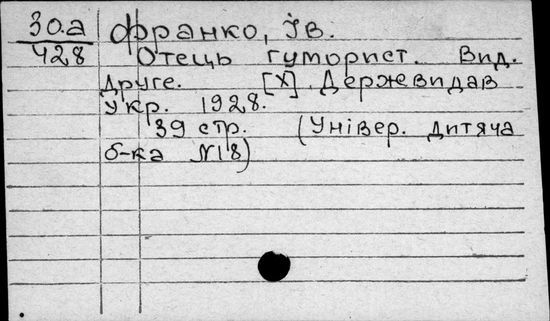 30.а франко, Ів.
428 Отець гуморист. Вид.
друге. [X]. Держвидав
Укр. 1928.
39 стр. (Універ. дитяча
б-ка №18)